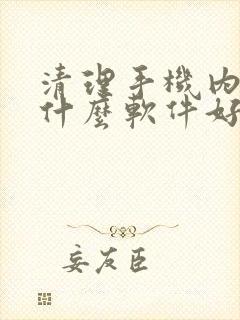 清理手機內
什麼軟件好
妄友臣